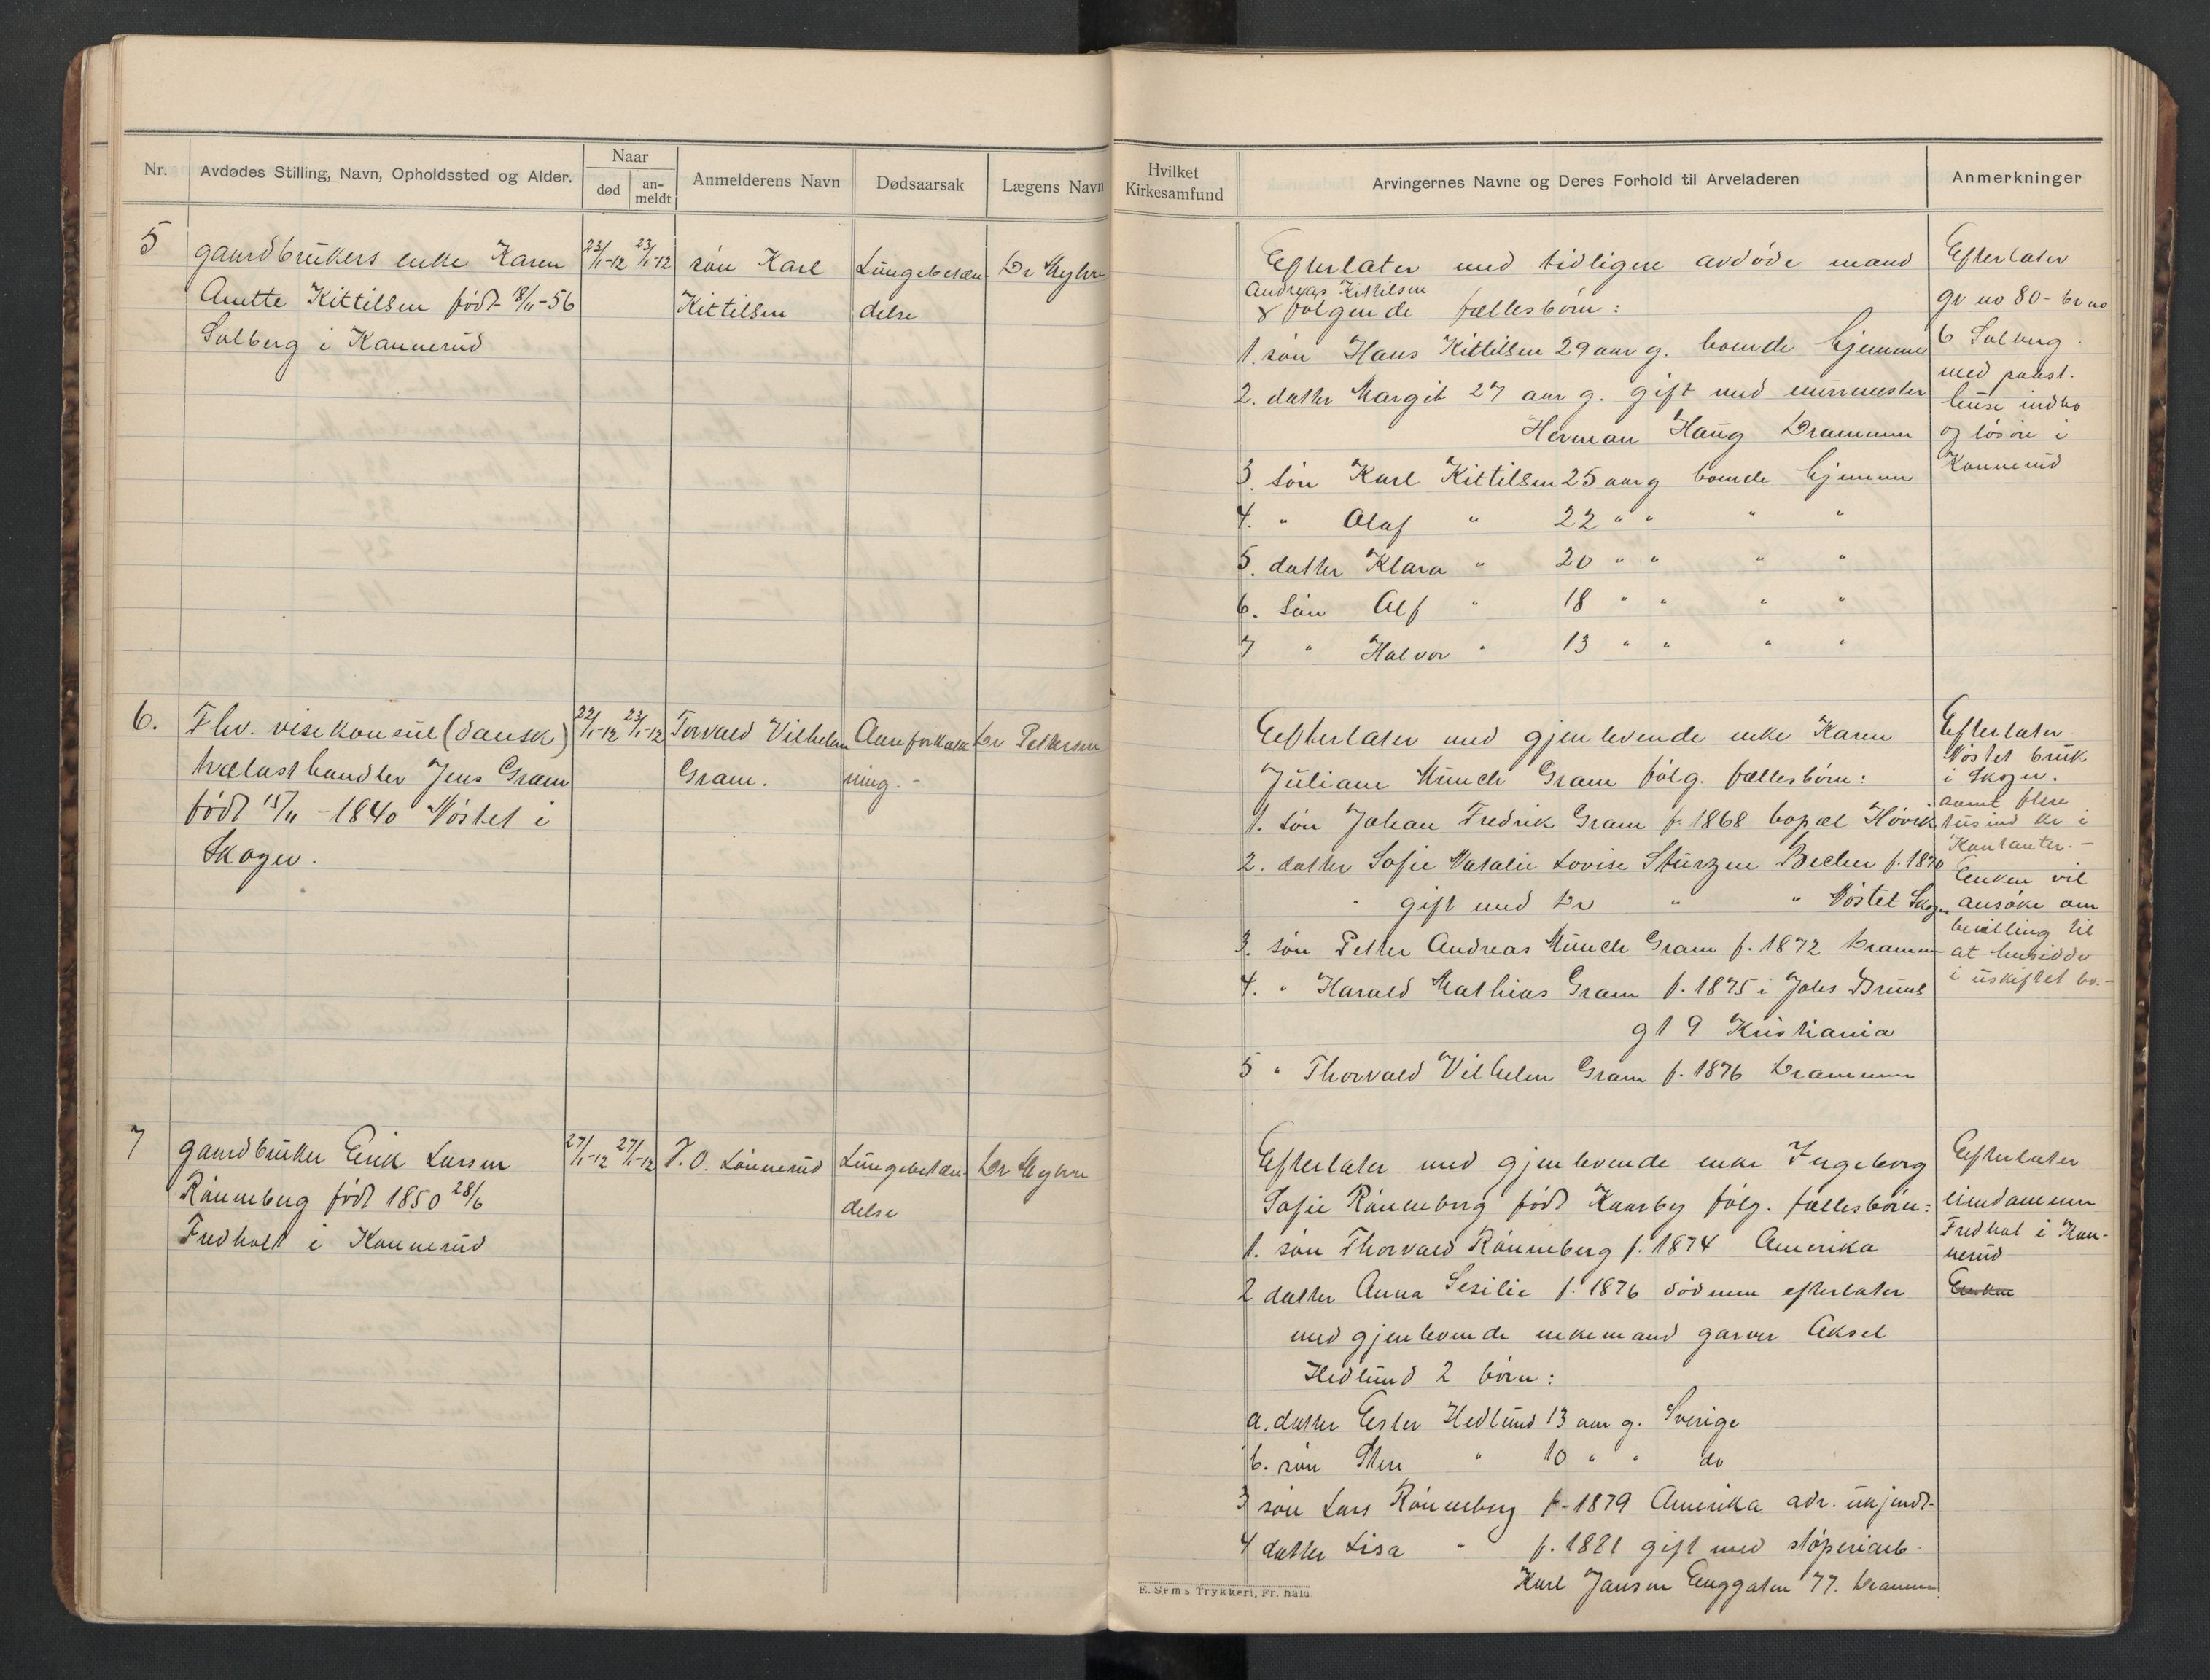 Nr.
Avdødes Stilling, Navn, Opholdssted og Alder.
Naar
død
an-
meldt
Anmelderens Navn
Dødsaarsak
Lægens Navn
5
gaardbrukers enke Karen
Anette Kittilsen født 18/11-56
Solberg i Konnerud
23/1-12
23/1-12
søn Karl
Kittilsen
Lungebetæn-
delse
Dr Myhre
6.
Fhv. visekonsul (dansk)
trælasthandler Jens Gram
født 15/11-1840 Nøstet i
Skoger.
22/1-12
23/1-12
Torvald Vilhelm
Gram.
Aareforkalk
ning.-
Dr Pettersen
7
gaardbruker Erik Larsen
Rønneberg født 1850 28/6
Fredholt i Konnerud
27/1-12
27/1-12
T. O. Lønnerud
Lungebetæn-
delse
Dr Myhre
Hvilket
Kirkesamfund
Arvingernes Navne og Deres Forhold til Arveladeren
Anmerkninger
Efterlater med tidligere avdøde mand
Andreas Kittilsen
x følgende fællesbørn:
1. søn Hans Kittilsen 29 aar g. boende hjemme
2. datter Margit 27 aar g. gift med murmester
Herman Haug Drammen
3. søn Karl Kittilsen 25 aar g boende hjemme
4. " Olaf " 22 " " " "
5. datter Klara " 20 " " " "
6. søn Alf " 18 " " " "
7 " Halvor " 13 " " " "
Efterlater
gr no 80- br no
6 Solberg.
med paast.
huse indbo
og løsøre i
Konnerud
Efterlater med gjenlevende enke Karen
Juliane Münch Gram følg. fællesbørn:
1. søn Johan Fredrik Gram f. 1868 bopæl Høvik
2. datter Sofie Natalie Lovise Sturzen Becker f. 1870
gift med Dr " " Nøstet Skoger
3. søn Petter Andreas Münch Gram f. 1872 Drammen
4. " Harald Mathias Gram f. 1875 i Johs Bruns
gt 9 Kristiania
5 " Thorvald Vilhelm Gram f. 1876 Drammen
Efterlater
Nøstet bruk
i Skoger.
samt flere
tusind kr i
Kontanter.-
Enken vil
ansøke om
bevilling til
at hensidde
i uskiftet bo.-
Efterlater med gjenlevende enke Ingeborg
Sofie Rønneberg født Kaarby følg. fællesbørn:
1. søn Thorvald Rønneberg f. 1874 Amerika
2 datter Anna Sesilie f. 1876 død men efterlater
med gjenlevende enkemand garver Aksel
Hedlund 2 børn:
a. datter Ester Hedlund 13 aar g. Sverige
b. søn Sture " 10 " " do
3 søn Lars Rønneberg f-1879 Amerika adr. ukjendt-
4 datter Lisa " f. 1881 gift med støperiarb.
Karl Jansen Enggaten 77. Drammen
Efterlater
eiendommen
Fredhol i Kon-
nerud
Enken
E. Sems Trykkeri, Fr.hald.